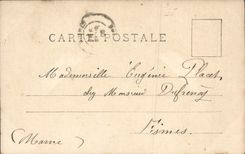 CARTE POSTALE
Mademoiselle Eugénie Placet
chez Monsieur Dufrenoy
Fismes.
(Marne)